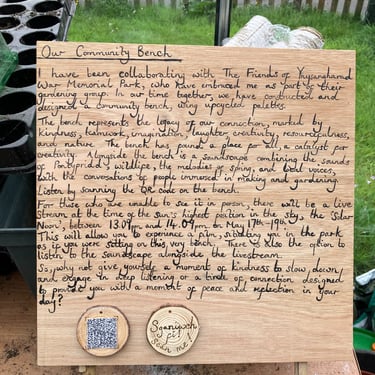 Our Community Bench
I have been collaborating with The Friends of Ynysangharad
War Memorial Park, who have embraced me as part of their
gardening group. In our time together, we have constructed and
designed a community bench, using upcycled palettes.
The bench represents the legacy of our connection, marked by
kindness, teamwork, imagination, laughter, creativity, resourcefulness,
and nature. The bench has found a place for all, a catalyst for
creativity. Alongside the bench is a soundscape combining the sounds
of Pontypridd's wildlife, the melodies of spring, and local voices,
with the conversations of people immersed in making and gardening
Listen by scanning the QR code on the bench.
For those who are unable to see it in person, there will be a live
stream at the time of the sun's highest position in the sky, the 'Solar
Noon', between 13.09pm and 14.09pm on May 17th-19th.
This will allow you to experience a film, situating you in the park
as if you were sitting on this very bench. There is also the option to
listen to the soundscape alongside the livestream.
So, why not give yourself a moment of kindness to slow down,
and engage in deep listening or a time of connection designed
to provide you with a moment of peace and reflection in your
day?
Sganiwch
fi!
Scan me!